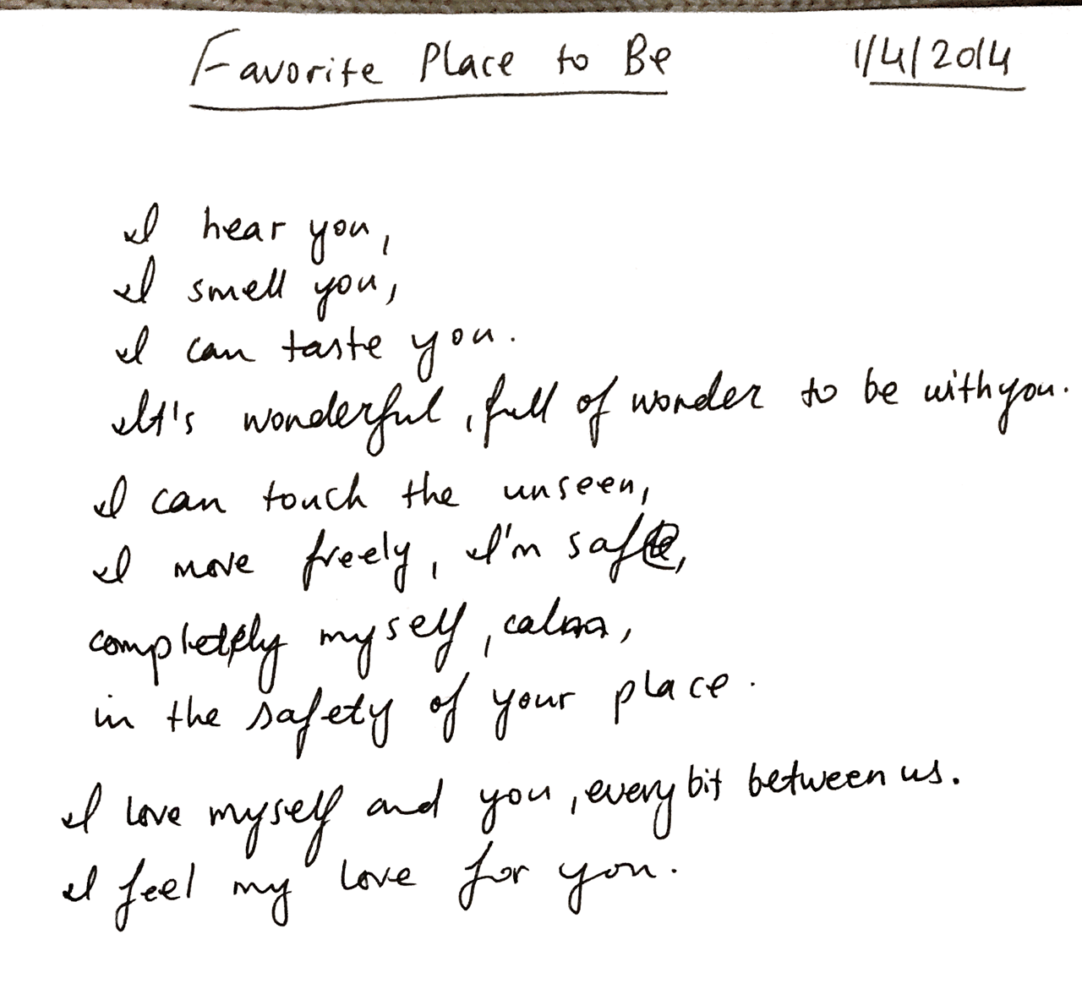 Favorite Place to Be 1/4/2014
I hear you,
I smell you,
I can taste you.
It's wonderful, full of wonder to be with you.
I can touch the unseen,
I move freely, I'm safe,
completely myself, calm,
in the safety of your place.
I love myself and you, every bit between us.
I feel my love for you.